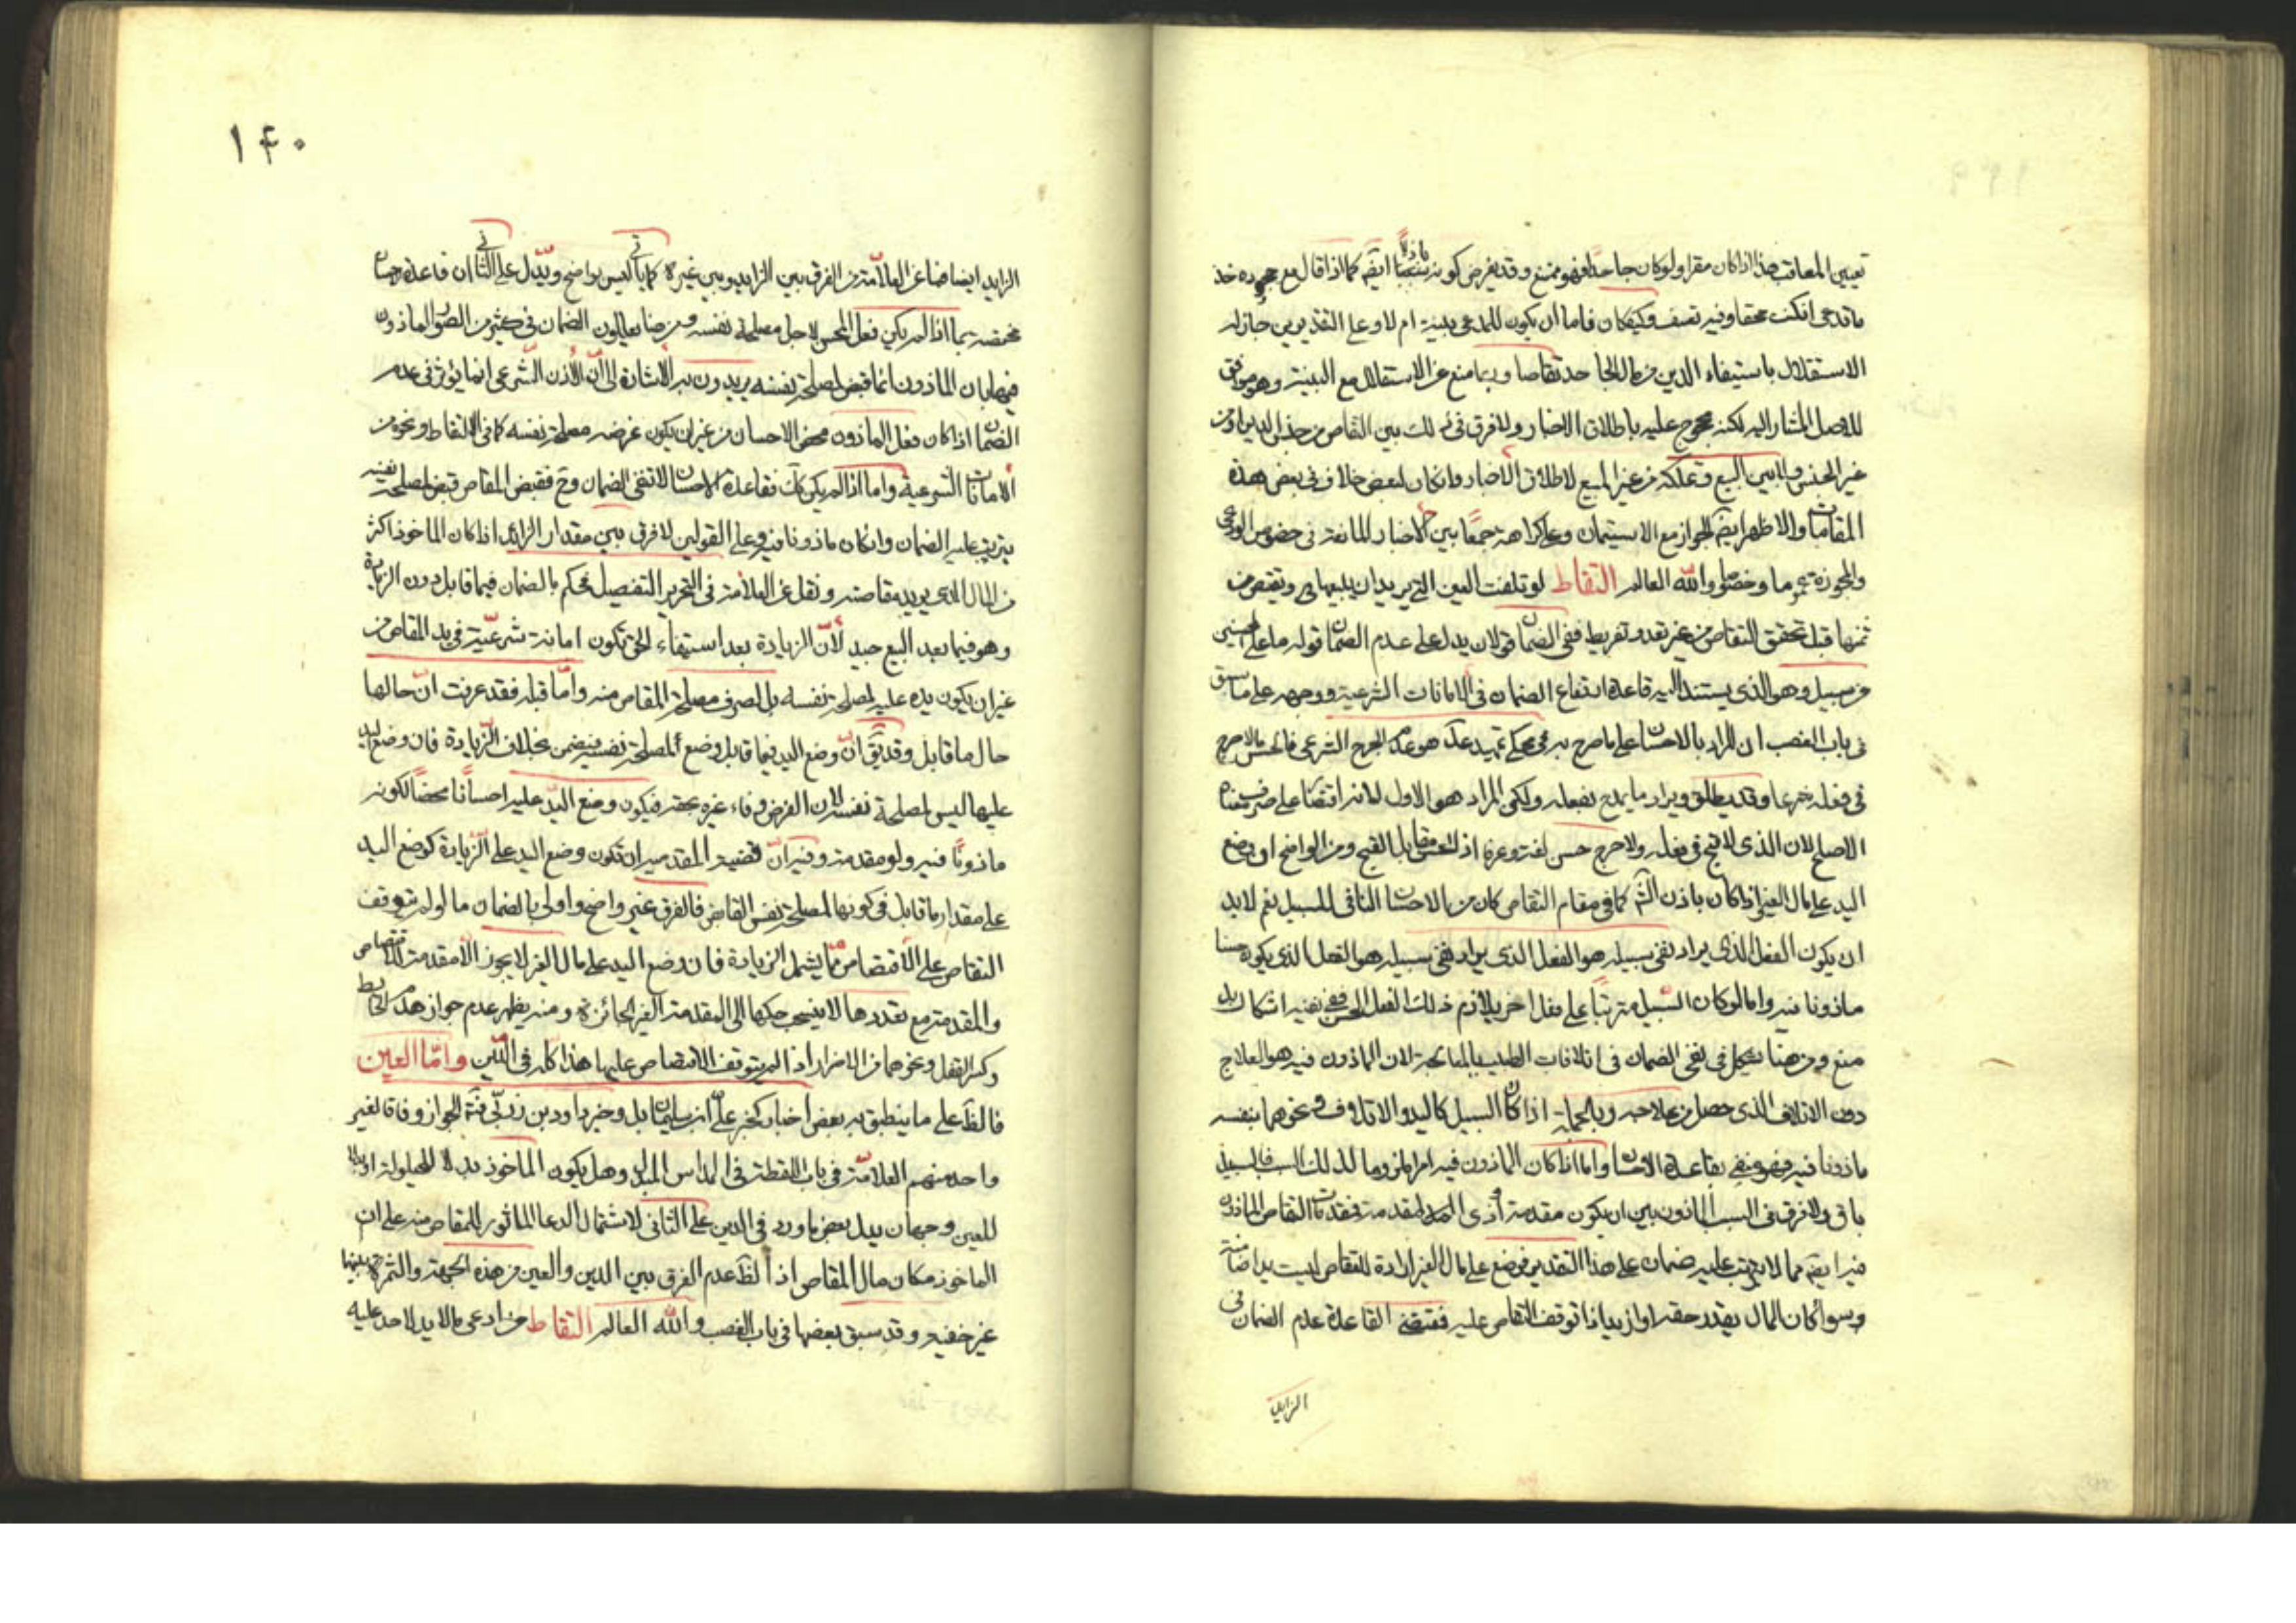 تعيين المعاقب هذا اذا كان مقرا ولو كان جاحدا فهو ممتنع وقد يفرض كونه ايضا كما اذا قال مع جحوده خذ
ما تدعى ان كنت محقا وفيه تعسف وكيفكان فاما ان يكون للمدعى بينة ام لا وعلى التقديرين جاز له
الاستقلال باستيفاء الدين من مال الجاحد تقاصا وربما منع عن الاستقلال مع البينة وهو موافق
للاصل المشار اليه لكنه محجوج عليه باطلاق الاخبار ولا فرق فى ذلك بين التقاص من جنس الدين او من
غير الجنس ولا بين البيع وتملكه من غير المبيع لاطلاق الاخبار وان كان لبعض خلاف فى بعض هذه
المقامات والاظهر ايضا الجواز مع الاستيمان وعلى كراهة جمعا بين الاخبار المانعة فى خصوص الودعى
والمجوزة عموما وخصوصا والله العالم التقاط لو تلفت العين التى يريد ان يبيعها ويقتص من
ثمنها قبل تحقق التقاص من غير تعد وتفريط ففى الضمان قولان يدل على عدم الضمان قوله ما على المحسنين
من سبيل وهو الذى يستند اليه قاعدة انتفاء الضمان فى الامانات الشرعية ووجهه على ما سبق
فى باب الغصب ان المراد بالاحسان على ما صرح به فى محكى تمهيد هو عدم الحرج الشرعى فالمحسن ما لا حرج
فى فعله شرعا وقد يطلق ويراد ما يمدح بفعله ولكن المراد هو الاول لانه اقتضاء على معناه
الاصلى لان الذى لا قبح فى فعله ولا حرج حسن لغة وعرفا اذ الحسن مقابل القبح ومن الواضح ان وضع
اليد على مال الغير اذا كان باذن الشرع كما فى مقام التقاص كان من الاحسان النافى للسبيل نعم لابد
ان يكون الفعل الذى يراد نفى سبيله هو الفعل الذى يراد نفى سبيله هو الفعل الذى يكون حسنا
ماذونا فيه واما لو كان السبيل مترتبا على فعل اخر يلازم ذلك الفعل الحسن ففى نفيه اشكال بل
منع ومن هنا نشكل فى نفى الضمان فى اتلافات الطبيب بالمعالجة لان الماذون فيه هو العلاج
دون الاتلاف الذى حصل من علاجه وبالجملة اذا كان السبيل كاليد والاتلاف ونحوهما بنفسه
ماذونا فيه فهو منفى بقاعدة الاحسان واما اذا كان الماذون فيه امرا ملزوما لذلك السبب فالسبيل
باق ولا فرق فى السبب الماذون بين ان يكون مقدمة او ذى المقدمة فمقدمات التقاص الماذون
فيه ايضا مما لا يترتب عليه ضمان على هذا التقدير فوضع على مال الغير ارادة للتقاص ليست يد ضامنة
وسواء كان المال بقدر حقه او ازيد اذا توقف التقاص عليه فمقتضى القاعدة عدم الضمان فى
الزايد
١٤٠
الزايد ايضا فما عن العلامة من الفرق بين الزايد وبين غيره كما ياتى ليس بواضح ويدل على الثانى ان قاعدة الاحسان
مختصة بما اذا لم يكن فعل المحسن لاجل مصلحة نفسه ومن هنا يعللون الضمان فى كثير من الصور الماذون
فيها بان الماذون انما قبض لمصلحة نفسه يريدون به الاشارة الى ان الاذن الشرعى انما يؤثر فى عدم
الضمان اذا كان فعل الماذون محض الاحسان من غير ان يكون غرضه مصلحة نفسه كما فى الالتقاط ونحوه من
الامانات الشرعية واما اذا لم يكن كك فقاعدة الاحسان لا تنفى الضمان وح فقبض المقاص قبض لمصلحة نفسه
يترتب عليه الضمان وان كان ماذونا فيه وعلى القولين لا فرق بين مقدار الزائد اذا كان الماخوذ اكثر
من المال الذى يريد مقاصته ونقل عن العلامة فى التحرير التفصيل فحكم بالضمان فيما قابل دون الزيادة
وهو فيما بعد البيع جيد لان الزيادة بعد استيفاء الحق تكون امانة شرعية فى يد المقاص من
غير ان يكون يده عليه لمصلحة نفسه بل لصرف مصلحة المقاص منه واما قبله فقد عرفت ان حالها
حال ما قابل وقد يق ان وضع اليد فيما قابل وضع لمصلحة نفسه فيضمن بخلاف الزيادة فان وضع اليد
عليها ليس لمصلحة نفسه لان الغرض وفاء غيره بحقه فيكون وضع اليد عليه احسانا محضا لكونه
ماذونا فيه ولو مقدمة وفيه ان قضية المقدمية ان تكون وضع اليد على الزيادة كوضع اليد
على مقدار ما قابل فى كونها لمصلحة نفس القابض فالفرق غير واضح واولى بالضمان ما لو لم يتوقف
التقاص على الاقتصاص مما يشمل الزيادة فان وضع اليد على مال الغير لا يجوز الا مقدمة للاقتصاص
والمقدمة مع تعددها لا ينسحب حكمها الى المقدمة الغير الجائزة ومنه يظهر عدم جواز هدم الحايط
وكسر القفل ونحوهما من الاضرار اذا لم يتوقف الاقتصاص عليها هذا كله فى الدين واما العين
فالظ على ما ينطبق به بعض اخبار كخبر على ابن سليمان بل وخبر داود بن زربى فيه الجواز وفاقا لغير
واحد منهم العلامة فى باب اللقطة فى المداس المبدل وهل يكون الماخوذ بدلا للحيلولة او بدلا
للعين وجهان يدل بعض ما ورد فى الدين على الثانى لاشتمال الدعاء الماثور للمقاص منه على ان
الماخوذ مكان مال المقاص اذ الظ عدم الفرق بين الدين والعين من هذه الجهة والثمرة بينهما
غير خفية وقد سبق بعضها فى باب الغصب والله العالم التقاط من ادعى مالا يد لاحد عليه